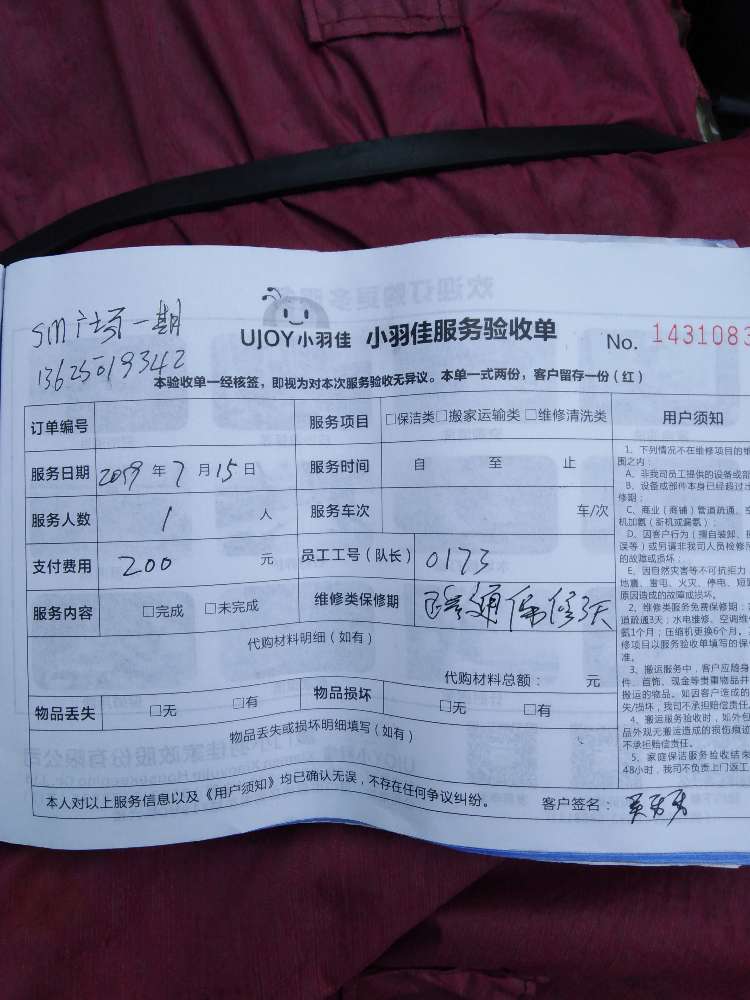 SM广场一期
13625019342
UJOY小羽佳 小羽佳服务验收单 No. 1431083
本验收单一经核签，即视为对本次服务验收无异议。本单一式两份，客户留存一份（红）
订单编号 服务项目 □保洁类□搬家运输类□维修清洗类 用户须知
服务日期 2019年7月15日 服务时间 自 至 止
服务人数 1 人 服务车次 车/次
支付费用 200 元 员工工号（队长） 0173
服务内容 □完成 □未完成 维修类保修期 通保修3天
代购材料明细（如有）
代购材料总额： 元
物品丢失 □无 □有 物品损坏 □无 □有
物品丢失或损坏明细填写（如有）
本人对以上服务信息以及《用户须知》均已确认无误，不存在任何争议纠纷。 客户签名：
1、下列情况不在维修项目的
围之内：
A、非我司员工提供的设备或部
B、设备或部件本身已经超过
修期；
C、商业（商铺）管道疏通、空
机加氨（新机或漏氨）；
D、因客户行为（擅自装卸、
误等）或另请非我司人员检修
的故障或损坏；
E、因自然灾害等不可抗拒力
地震、雷电、火灾、停电、短
原因造成的故障或损坏。
2、维修类服务免费保修期：
道疏通3天；水电维修、空调维
氨1个月；压缩机更换6个月。
修项目以服务验收单填写的保
准。
3、搬运服务中，客户应随身
件、首饰、现金等贵重物品并
搬运的物品。如因客户造成的
失/损坏，我司不承担赔偿责任。
4、搬运服务验收时，如外包
品外观无搬运造成的损伤痕迹
不承担赔偿责任。
5、家庭保洁服务验收结束
48小时，我司不负责上门返工